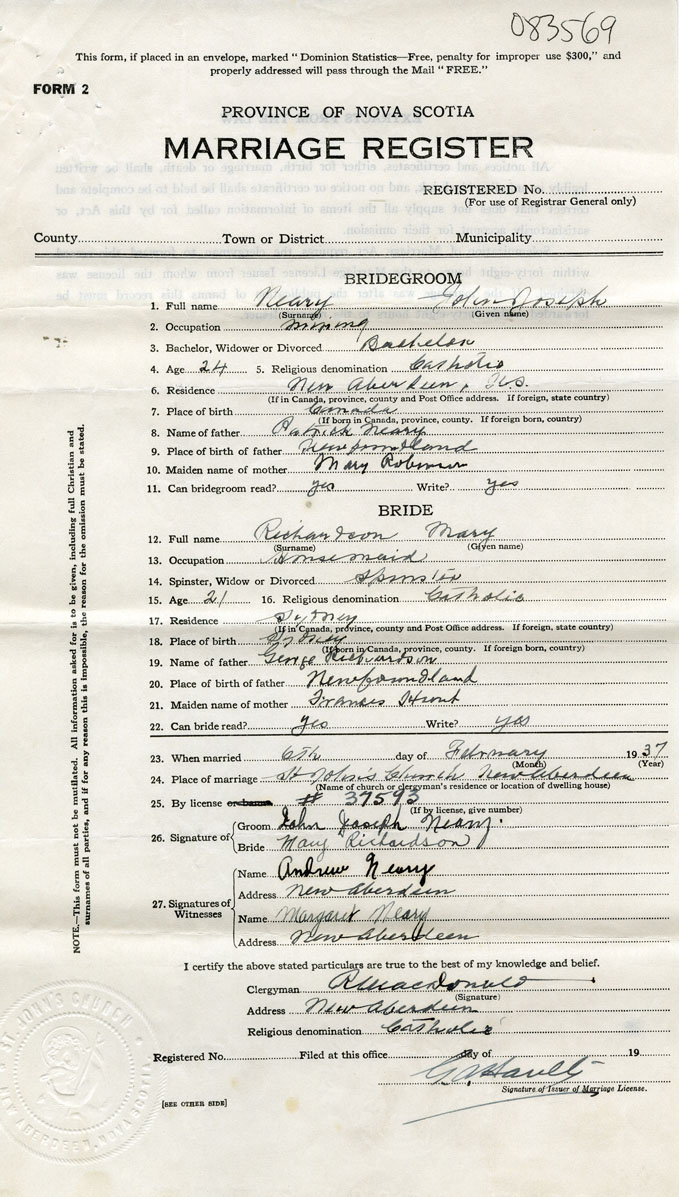 083569
This form, if placed in an envelope, marked "Dominion Statistics—Free, penalty for improper use $300," and
properly addressed will pass through the Mail "FREE."
FORM 2
PROVINCE OF NOVA SCOTIA
MARRIAGE REGISTER
REGISTERED No.
(For use of Registrar General only)
County Town or District Municipality
BRIDEGROOM
1. Full name Neary John Joseph
(Surname) (Given name)
2. Occupation mining
3. Bachelor, Widower or Divorced Bachelor
4. Age 24 5. Religious denomination Catholic
6. Residence New Aberdeen, N.S.
(If in Canada, province, county and Post Office address. If foreign, state country)
7. Place of birth Canada
(If born in Canada, province, county. If foreign born, country)
8. Name of father Patrick Neary
9. Place of birth of father Newfoundland
10. Maiden name of mother Mary Robinson
11. Can bridegroom read? yes Write? yes
BRIDE
12. Full name Richardson Mary
(Surname) (Given name)
13. Occupation Housemaid
14. Spinster, Widow or Divorced Spinster
15. Age 21 16. Religious denomination Catholic
17. Residence Sydney
(If in Canada, province, county and Post Office address. If foreign, state country)
18. Place of birth Sydney
(If born in Canada, province, county. If foreign born, country)
19. Name of father George Richardson
20. Place of birth of father Newfoundland
21. Maiden name of mother Frances
22. Can bride read? yes Write? yes
23. When married 6th day of February 1937
(Month) (Year)
24. Place of marriage St John's Church New Aberdeen
(Name of church or clergyman's residence or location of dwelling house)
25. By license or banns # 37593
(If by license, give number)
26. Signature of
Groom John Joseph Neary.
Bride Mary Richardson
27. Signatures of Witnesses
Name Andrew Neary
Address New Aberdeen
Name Margaret Neary
Address New Aberdeen
I certify the above stated particulars are true to the best of my knowledge and belief.
Clergyman MacDonald
(Signature)
Address New Aberdeen
Religious denomination Catholic
Registered No. Filed at this office day of 19
Signature of Issuer of Marriage License.
[SEE OTHER SIDE]
NOTE.—This form must not be mutilated. All information asked for is to be given, including full Christian and
surnames of all parties, and if for any reason this is impossible, the reason for the omission must be stated.